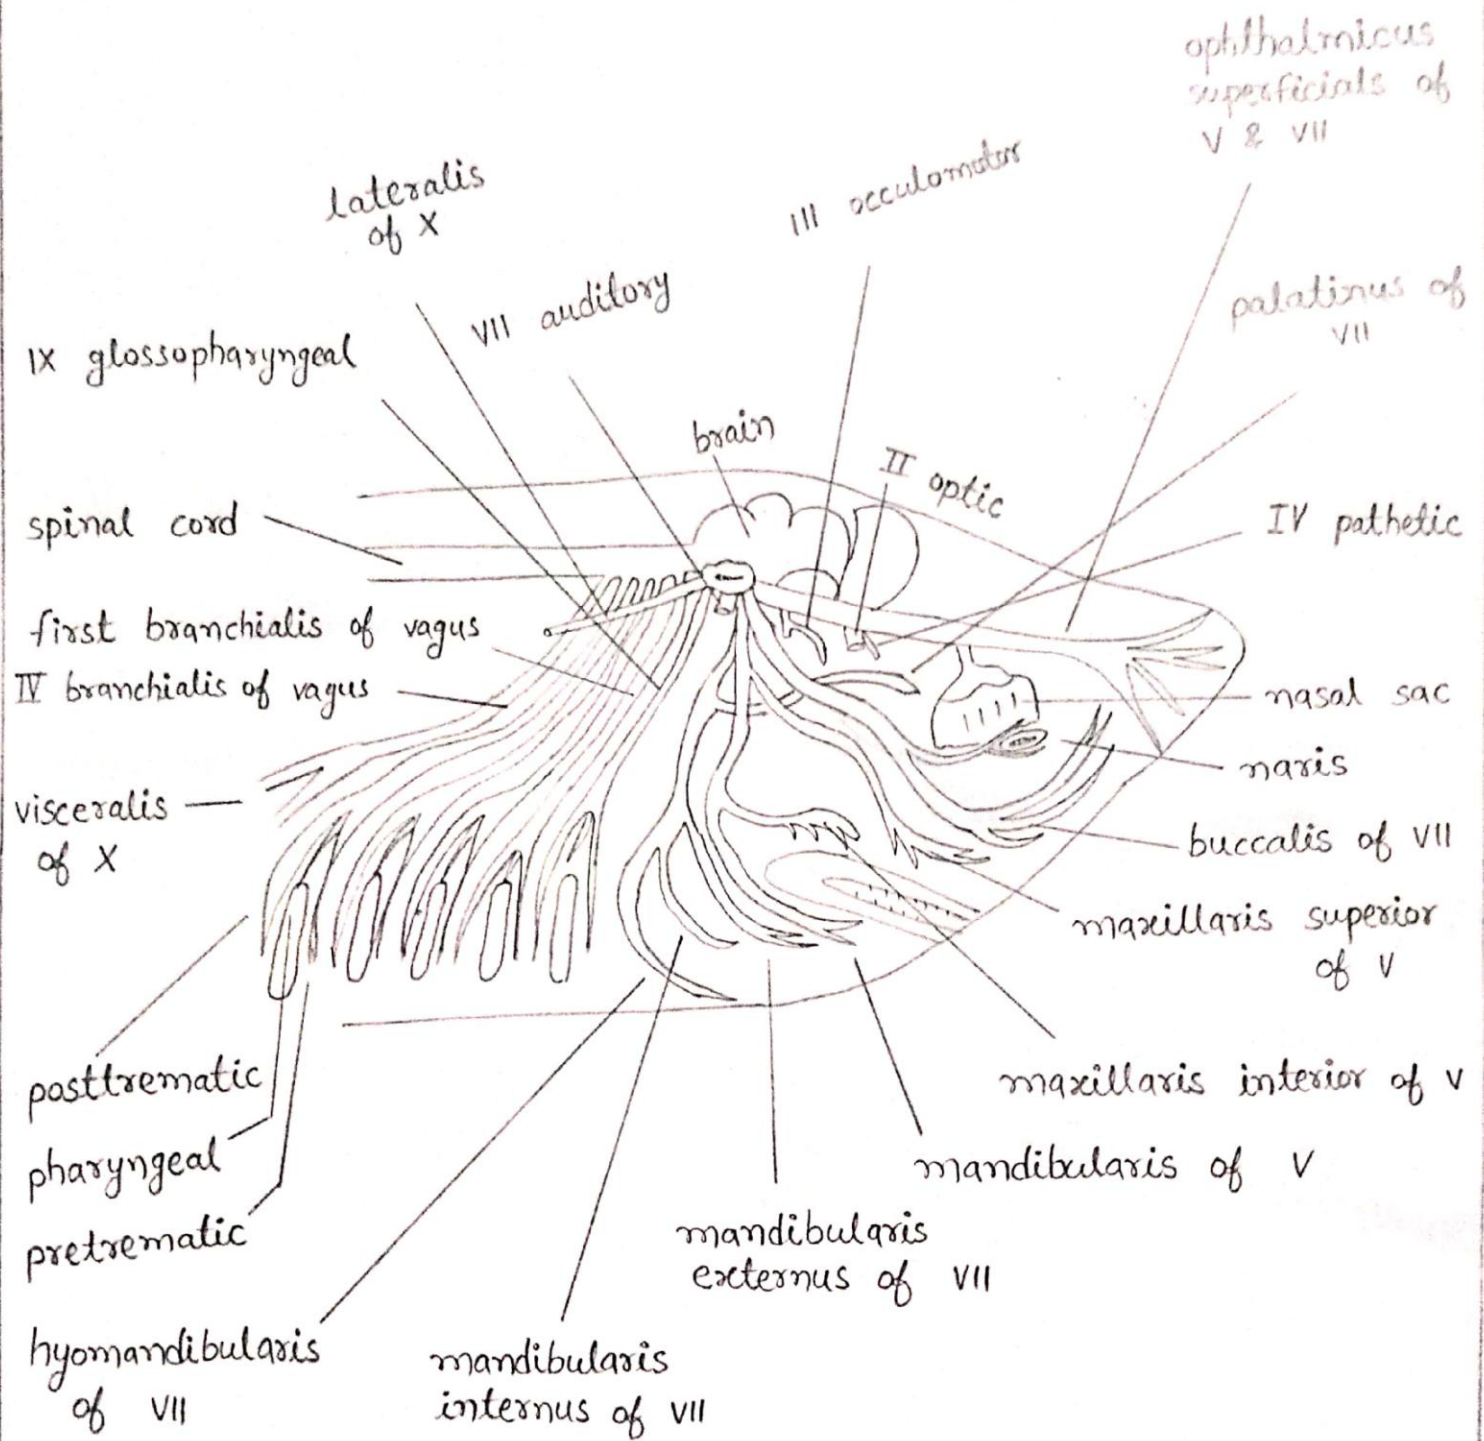 ophthalmicus
superficials of
V & VII
lateralis
of X
III occulomotor
VII auditory
palatinus of
VII
IX glossopharyngeal
brain
II optic
spinal cord
IV pathetic
first branchialis of vagus
IV branchialis of vagus
nasal sac
naris
visceralis
of X
buccalis of VII
maxillaris superior
of V
posttrematic
maxillaris interior of V
pharyngeal
mandibularis of V
pretrematic
mandibularis
externus of VII
hyomandibularis
of VII
mandibularis
internus of VII